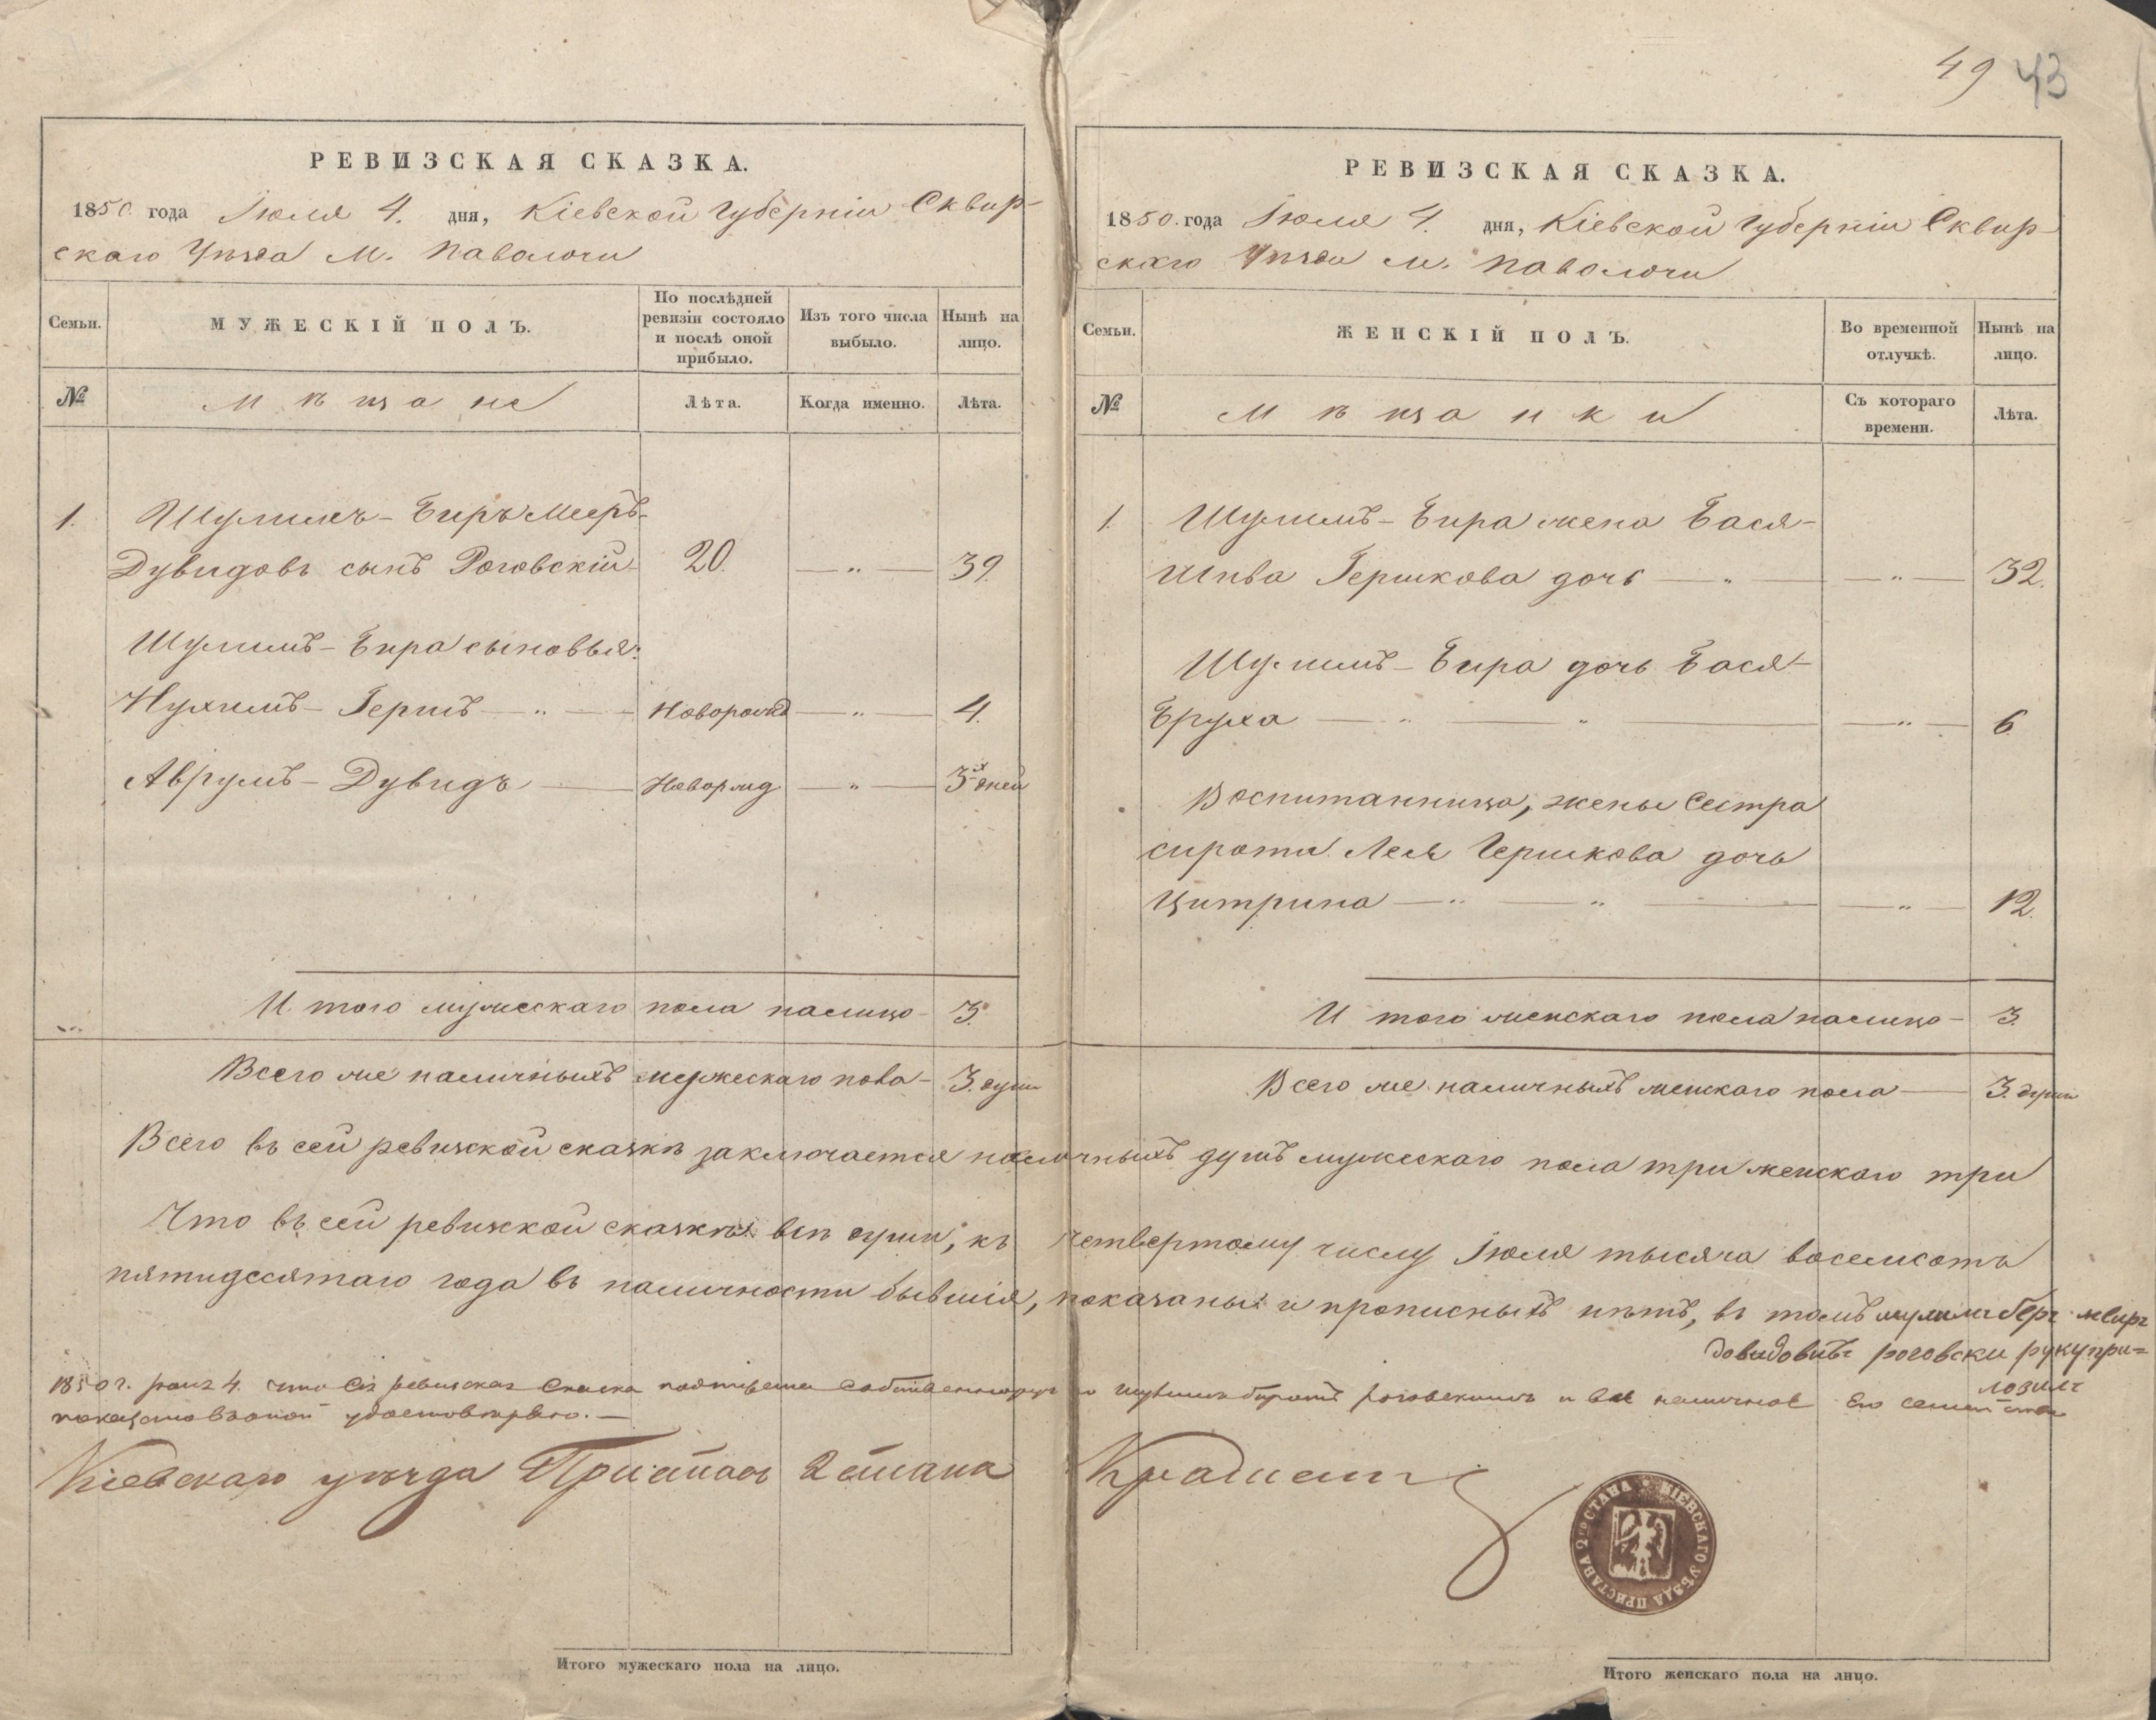 49 43
РЕВИЗСКАЯ СКАЗКА.
1850. года Іюля 4. дня, Кіевской Губерніи Сквир-
скаго Уѣзда М. Паволочи
Семьи.
МУЖЕСКІЙ ПОЛЪ.
По послѣдней
ревизіи состояло
и послѣ оной
прибыло.
Изъ того числа
выбыло.
Нынѣ на
лицо.
№
Мѣщане
Лѣта.
Когда именно.
Лѣта.
1. Шулимъ-Беръ Мееръ-
Дувидовъ сынъ Роговскій 20. — „ — 39.
Шулимъ-Бера сыновья:
Нухимъ-Гершъ — „ — Новорожд — „ — 4.
Аврумъ-Дувидъ — Новорожд — „ — 3х дней
И того мужескаго пола налицо - 3.
Всего же наличныхъ мужескаго пола - 3. души
РЕВИЗСКАЯ СКАЗКА.
1850. года Іюля 4. дня, Кіевской Губерніи Сквир-
скаго Уѣзда м. Паволочи
Семьи.
ЖЕНСКІЙ ПОЛЪ.
Во временной
отлучкѣ.
Нынѣ на
лицо.
№
Мѣщанки
Съ котораго
времени.
Лѣта.
1. Шулимъ-Бера жена Бася-
Шива Гершкова дочь — „ — — „ — 32.
Шулимъ-Бера дочь Бася-
Бруха — „ — „ — — „ — 6
Воспитанница, жены Сестра
сирота Лея Гершкова дочь
Цитрина — „ — „ — — „ — 12.
И того женскаго пола налицо - 3.
Всего же наличныхъ женскаго пола — 3. души
Всего въ сей ревизской сказкѣ заключается наличныхъ душъ мужескаго пола три женскаго три
Что въ сей ревизской сказкѣ всѣ души, къ четвертому числу Іюля тысяча восемсотъ
пятидесятаго года въ наличности бывшія, показаны и прописныхъ нѣтъ, въ томъ шулимъ беръ меиръ
довидовичъ роговски руку при=
ложилъ
1850 г. 4. что сія ревизская Сказка подписана собственноручно Шулимъ Беромъ Роговскимъ и все наличное Его семейство
показано въ оной удостовѣряю. —
Кіевскаго уѣзда Приставъ 2 стана
КІЕВСКАГО УѢЗДА ПРИСТАВА 2го СТАНА
Итого мужескаго пола на лицо.
Итого женскаго пола на лицо.